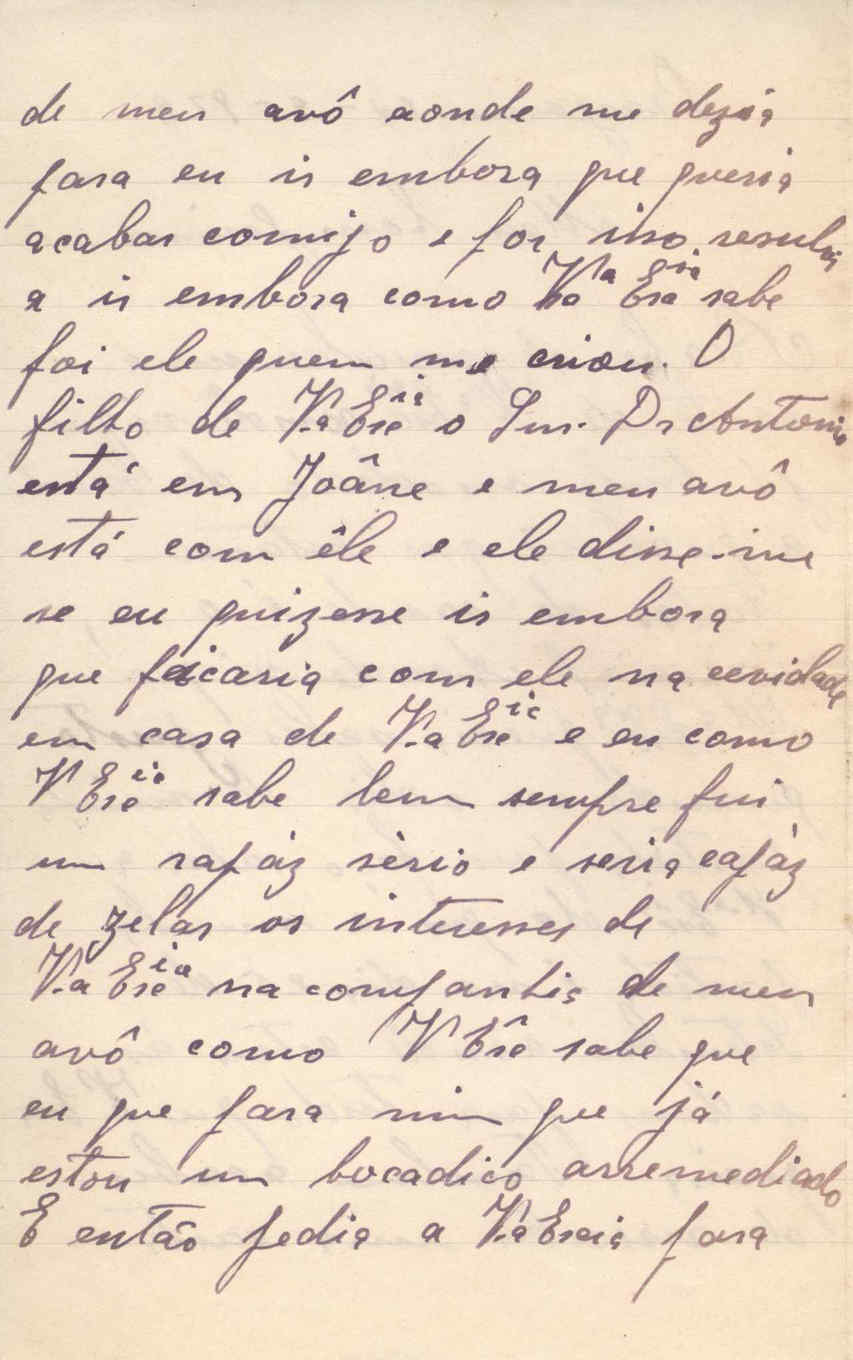 de meu avô aonde me dezia
para eu ir embora que queria
acabar comigo e por isso resulvi
a ir embora como Va Exa cia sabe
foi ele quem me criou. O
filho de V.a Exe ia o Snr. Dr Antonio
está em Joâne e meu avô
está com êle e ele disse-me
se eu quizesse ir embora
que ficaria com ele na cevidade
em casa de V.a Exe ia e eu como
V Exe ia sabe bem sempre fui
um rapáz sèrio e seria capáz
de zelar os interesses de
V.a Exe ia na companhia de meu
avô como V Exe sabe que
eu que para mim que já
estou um bocadico arremediado
E então pedia a V.a Excia para